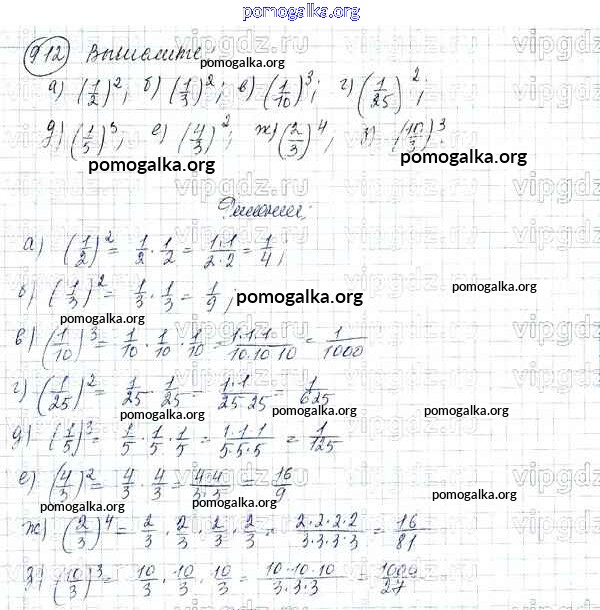 pomogalka.org
912 Вычислите:
pomogalka.org
а) (1/2)²; б) (1/3)²; в) (1/10)³; г) (1/25)²;
д) (1/5)³; е) (4/3)²; ж) (2/3)⁴; з) (10/3)³.
pomogalka.org pomogalka.org
Решение:
а) (1/2)² = 1/2 · 1/2 = 1·1/2·2 = 1/4;
б) (1/3)² = 1/3 · 1/3 = 1/9;
pomogalka.org pomogalka.org
в) (1/10)³ = 1/10 · 1/10 · 1/10 = 1·1·1/10·10·10 = 1/1000
pomogalka.org pomogalka.org
г) (1/25)² = 1/25 · 1/25 = 1·1/25·25 = 1/625
pomogalka.org pomogalka.org pomogalka.org
д) (1/5)³ = 1/5 · 1/5 · 1/5 = 1·1·1/5·5·5 = 1/125
е) (4/3)² = 4/3 · 4/3 = 4·4/3·3 = 16/9
pomogalka.org pomogalka.org
ж) (2/3)⁴ = 2/3 · 2/3 · 2/3 · 2/3 = 2·2·2·2/3·3·3·3 = 16/81
з) (10/3)³ = 10/3 · 10/3 · 10/3 = 10·10·10/3·3·3 = 1000/27
vipgdz.ru